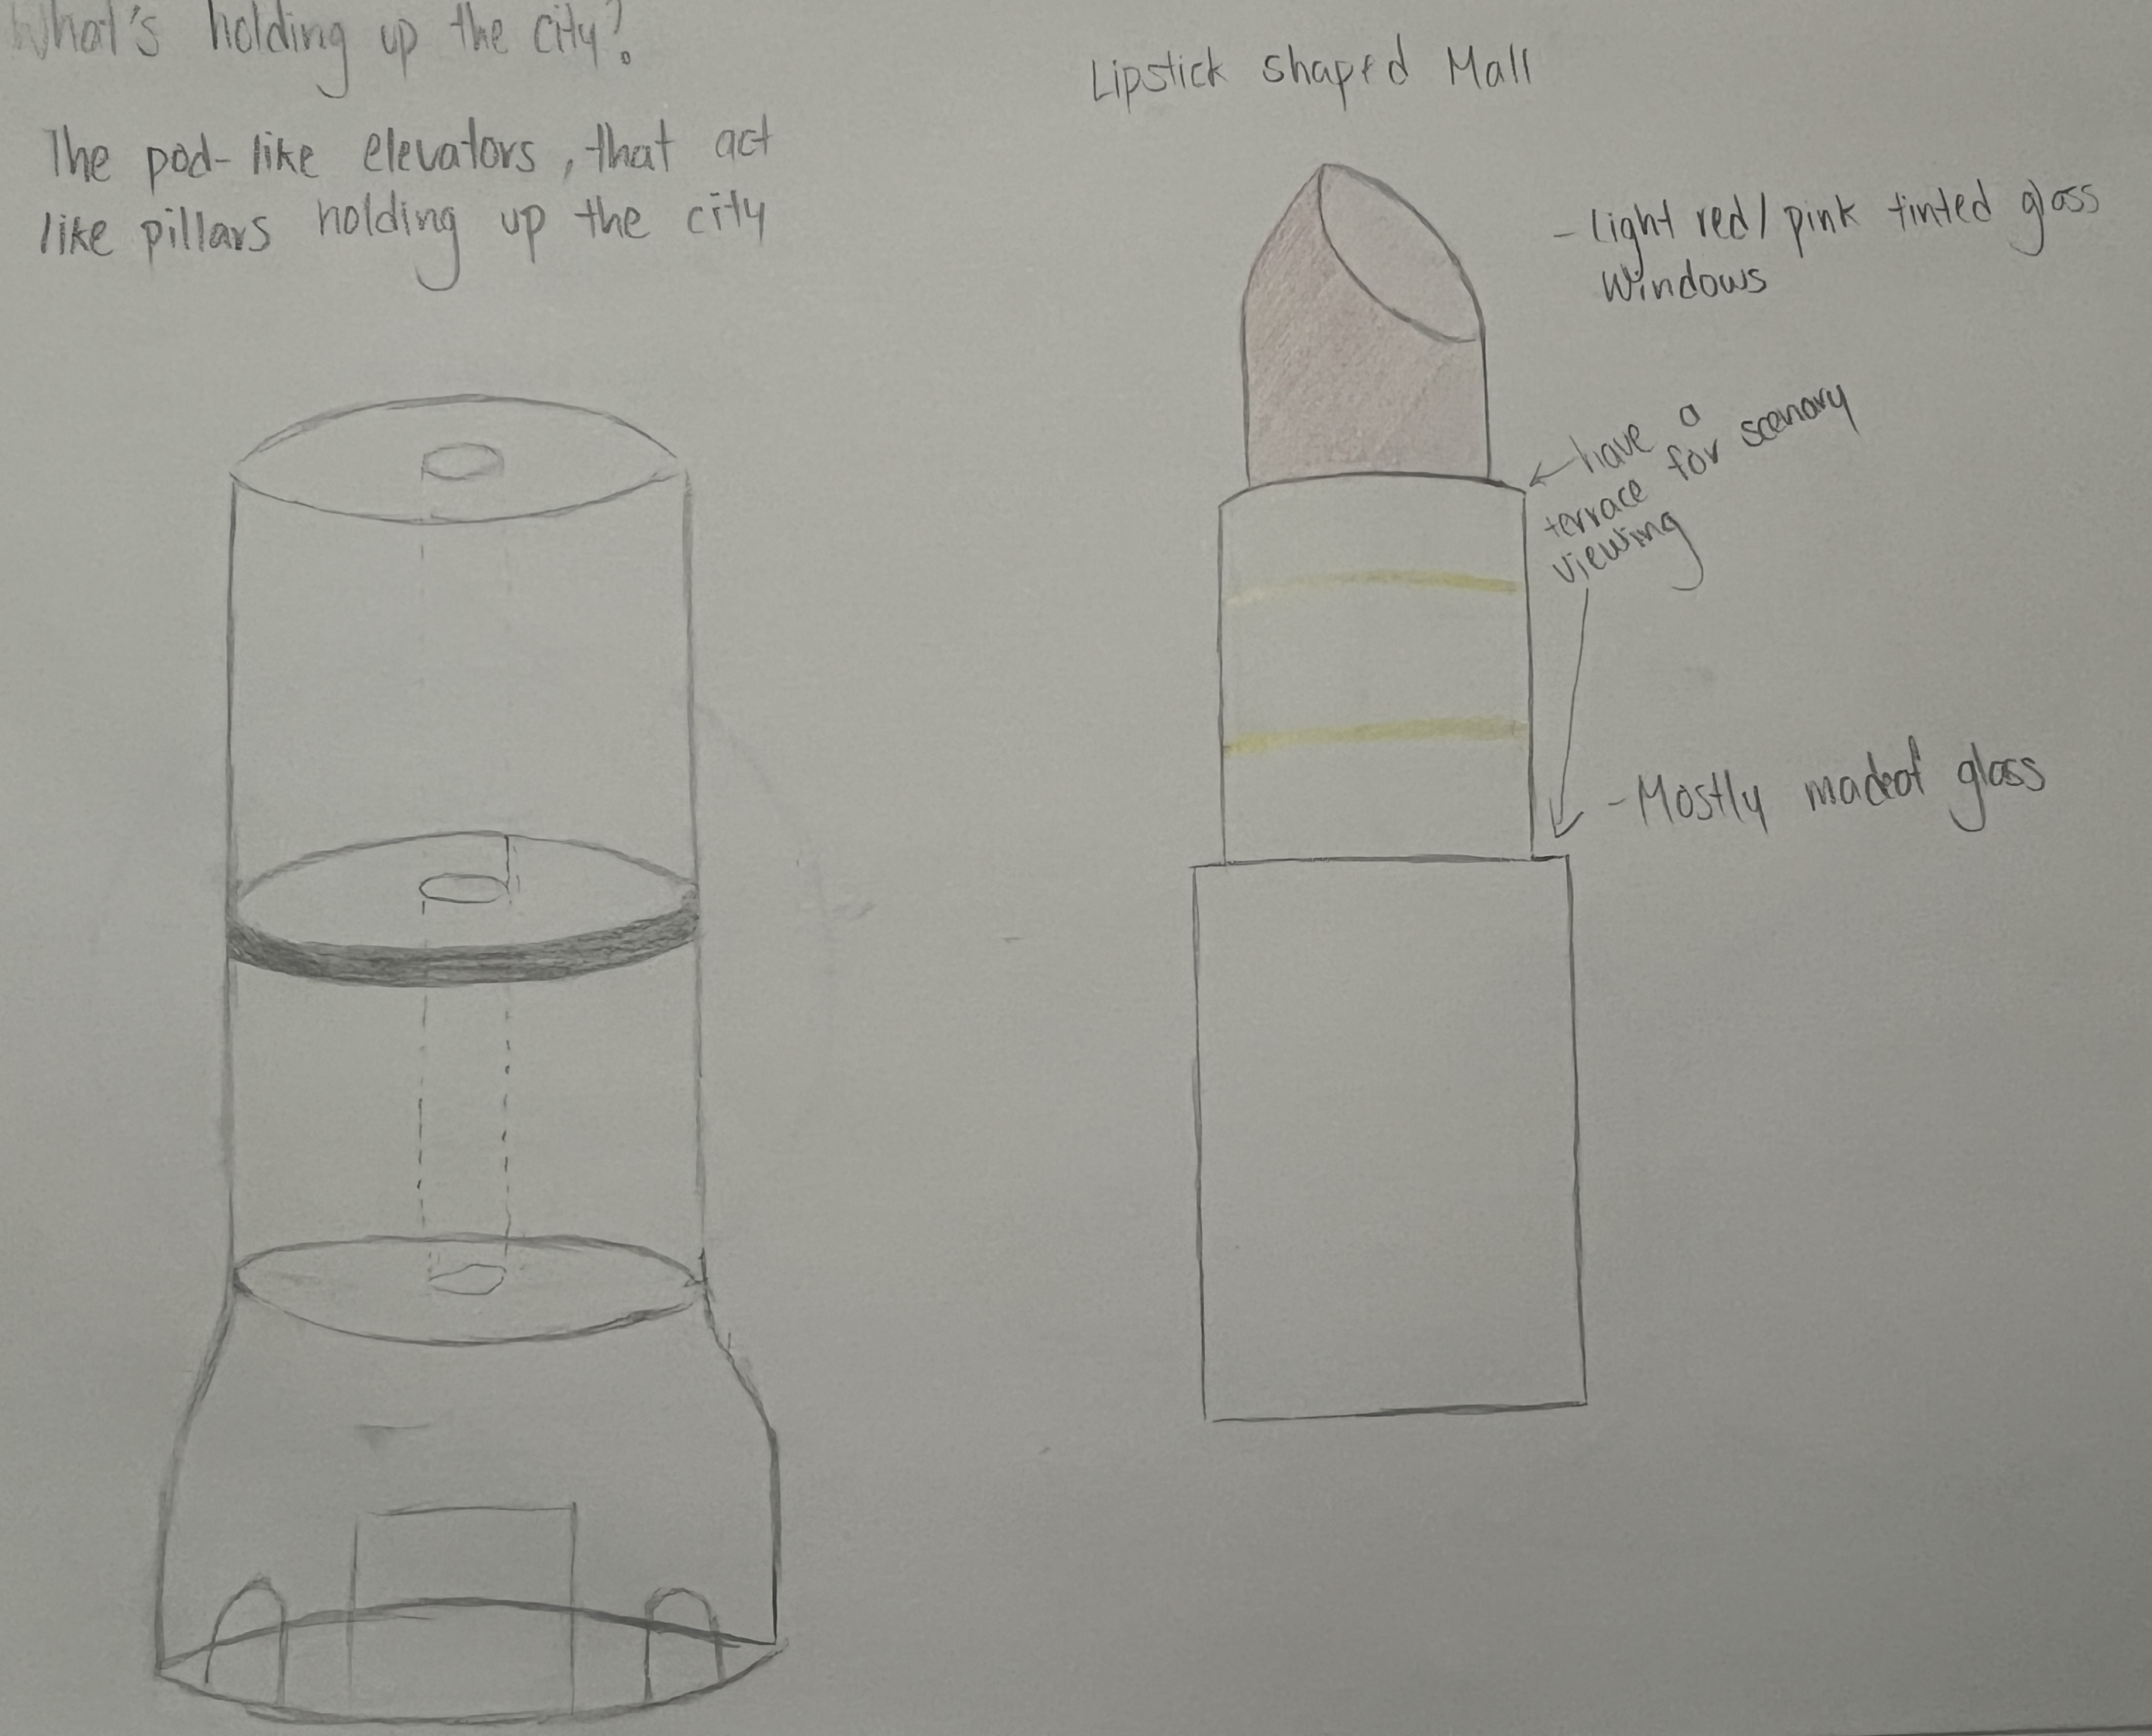 What's holding up the city?
The pod-like elevators, that act
like pillars holding up the city
Lipstick shaped Mall
- light red/pink tinted glass
Windows
have a
terrace for scenary
viewing
- Mostly madeof glass